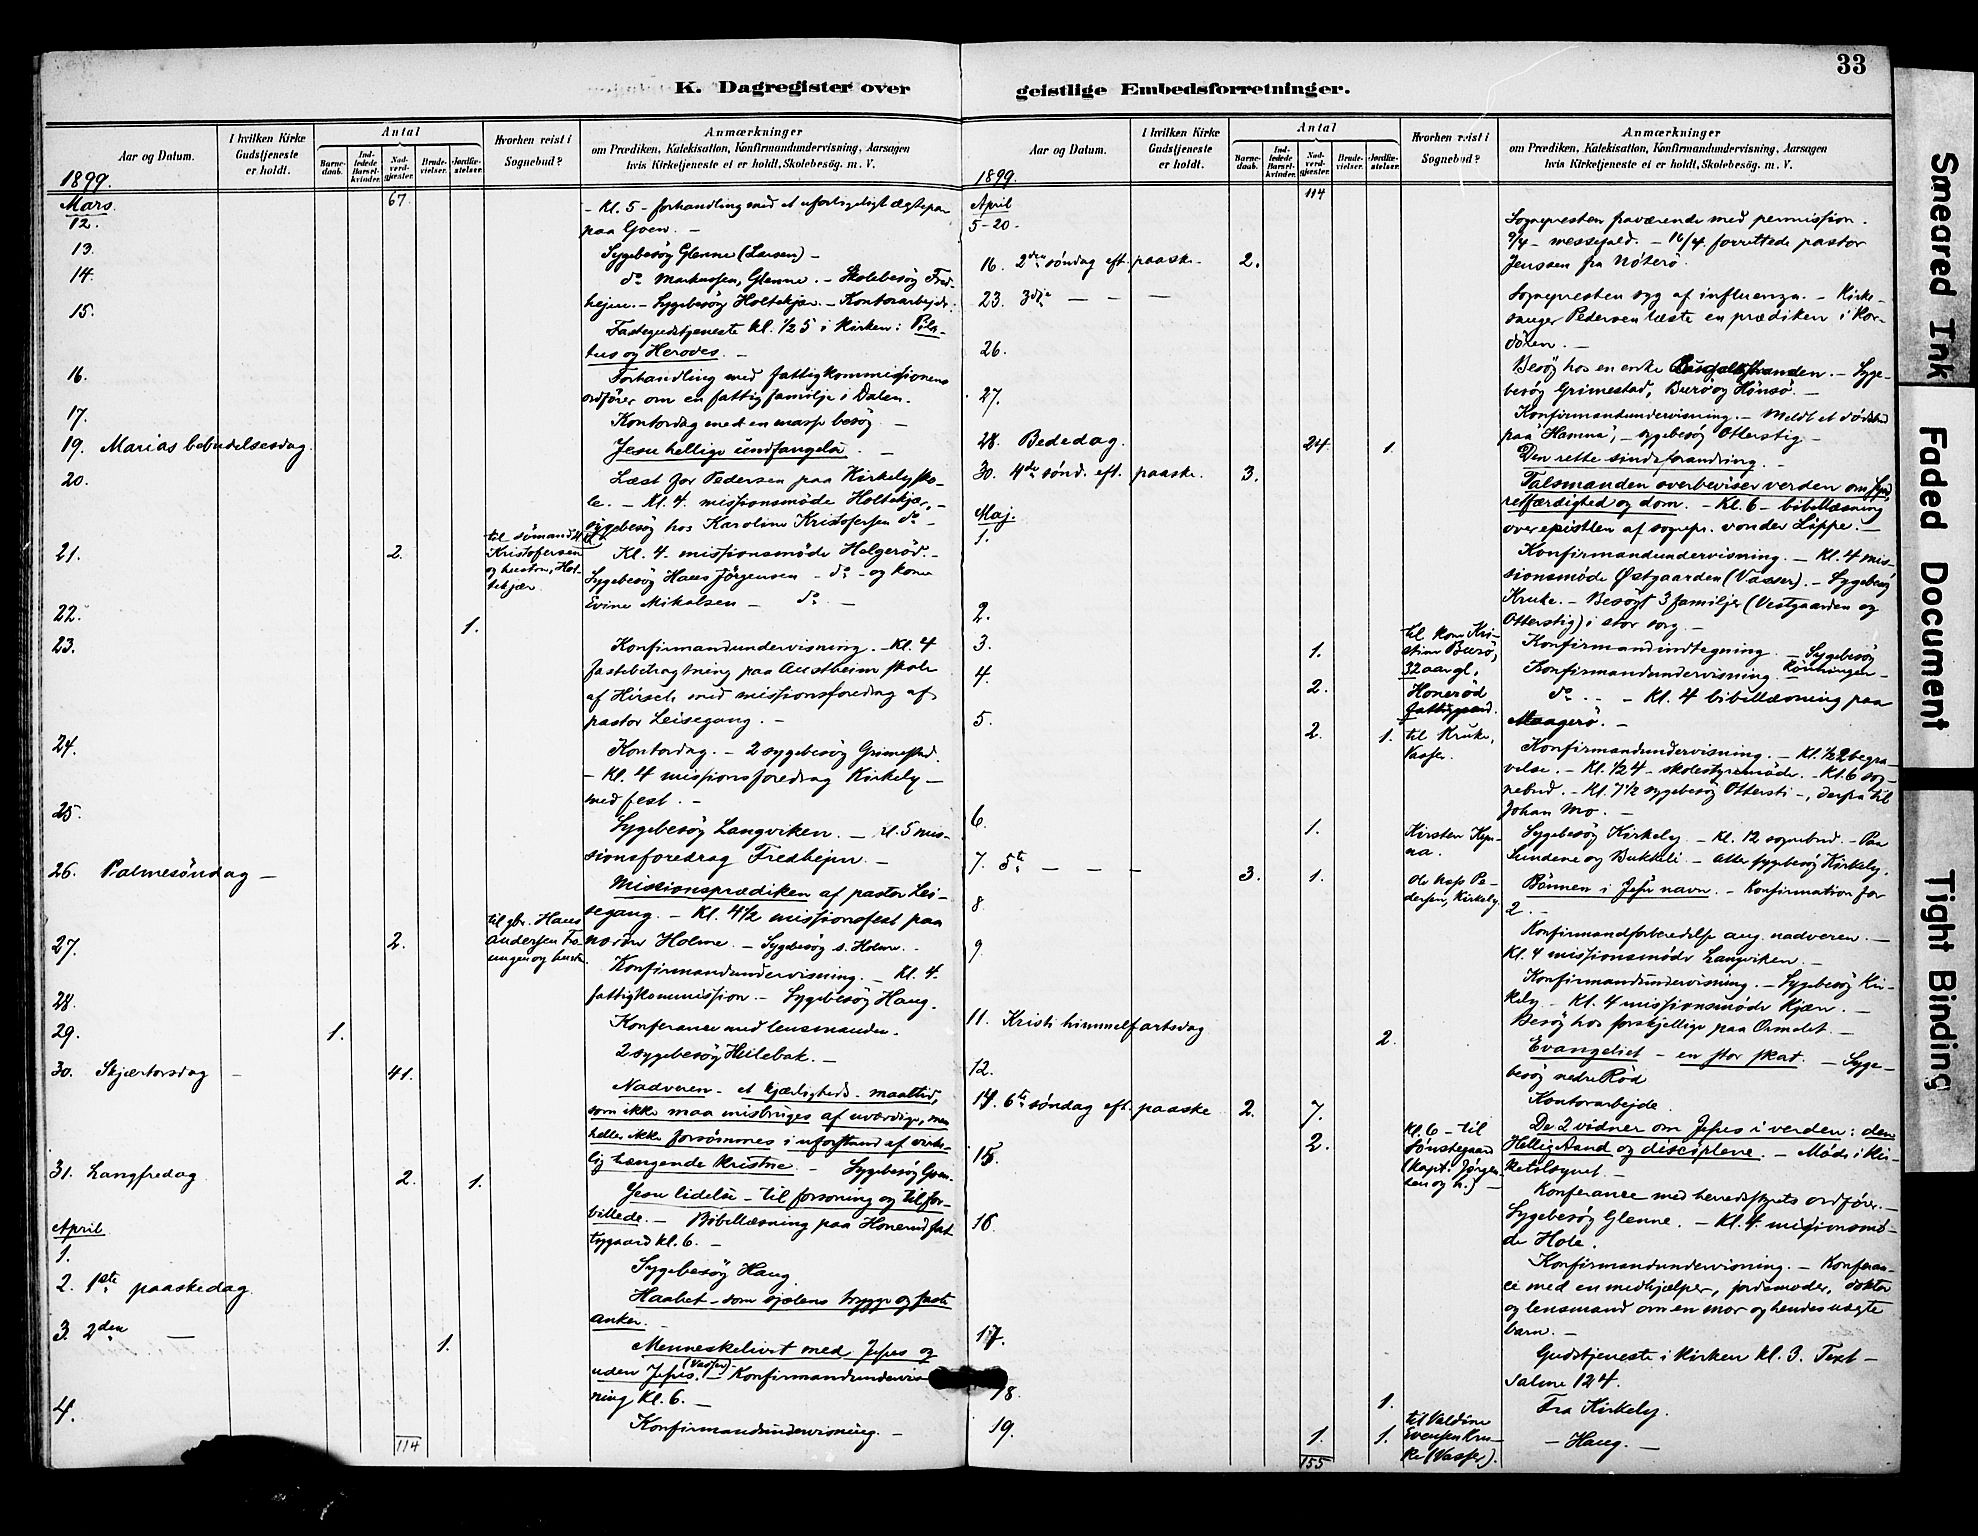 33
K. Dagregister over geistlige Embedsforretninger.
Aar og Datum.
I hvilken Kirke Gudstjeneste er holdt.
Antal
Barne-daab.
Ind-ledede Barsel-kvinder.
Nad-verd-gjæster.
Brude-vielser.
Jordfæ-stelser.
Hvorhen reist i Sognebud?
Anmærkninger
om Prædiken, Katekisation, Konfirmandundervisning, Aarsagen
hvis Kirketjeneste ei er holdt, Skolebesög. m. V.
1899.
Mars. 67.
- Kl. 5 - forhandling med et uforligeligt ægtepar
12. paa Goen. -
13. Sygebesög Glenne (Larsen) -
14. do Markussen, Glenne. - Skolebesög Fred-
hejm. - Sygebesög Holtekjær. - Kontorarbejde.
15. Fastegudstjeneste kl. 1/2 5 i kirken: Pila-
tus og Herodes. -
16. Forhandling med fattigkommissionens
ordförer om en fattig familje i Dalen.
17. Kontordag med en masse besög. -
19. Marias bebudelsesdag. Jesu hellige undfangelse. -
20. Læst for Pedersen paa Kirkely sko-
le. - Kl. 4. missionsmöde Holtekjær, -
sygebesög hos Karoline Kristofersen do -
21. 2. til sömand
Kristofersen
og hustru, Hol-
tekjær
Kl. 4. missionsmöde Holgeröd. -
Sygebesög Hans Jörgensen - do - og kone
Evine Mikalsen - do -
22. 1.
23. Konfirmandundervisning. - Kl. 4
fastebetragtning paa Austheim skole
af Hirsch med missionsforedrag af
pastor Leisegang. -
24. Kontordag. - 2 sygebesög Grimestad.
- Kl. 4 missionsforedrag Kirkely -
med fest. -
25. Sygebesög Langviken. - kl. 5 mis-
sionsforedrag Fredhejm. -
26. Palmesöndag - Missionsprædiken af pastor Lei-
segang. - Kl. 4 1/2 missionsfest paa
nordre Holme. - Sygebesög s. Holme. -
27. 2. til gbr. Hans
Andersen
og hustru.
Konfirmandundervisning. - Kl. 4.
fattigkommission. - Sygebesög Haug.
28. Konferance med lensmanden.
29. 1. 2 sygebesög Hellebak. -
30. Skjærtorsdag - 41. Nadveren - et kjærligheds-maaltid,
som ikke maa misbruges af uværdige, men
heller ikke forsömmes i uforstand af
hængende kristne. - Sygebesög Goen.
31. Langfredag 2. 1. Jesu lidelse - til forsoning og til for-
billede. - Bibellæsning paa Honeröd fat-
tiggaard kl. 6. -
April
1. Sygebesög Haug.
2. 1ste paaskedag Haabet - som sjælens trygge og faste
anker. -
3. 2den - 1. Menneskelivet med Jesus og
uden Jesus. (Vasser). - Konfirmandundervis-
ning kl. 6. -
4. Konfirmandundervisning. -
114
Aar og Datum.
I hvilken Kirke Gudstjeneste er holdt.
Antal
Barne-daab.
Ind-ledede Barsel-kvinder.
Nad-verd-gjæster.
Brude-vielser.
Jordfæ-stelser.
Hvorhen reist i Sognebud?
Anmærkninger
om Prædiken, Katekisation, Konfirmandundervisning, Aarsagen
hvis Kirketjeneste ei er holdt, Skolebesög. m. V.
1899.
April 114
5-20. Sognepresten fraværende med permission.
9/4 - messefald. - 16/4 forrettede pastor
16. 2den söndag eft. paaske. 2. Jenssen fra Nöterö.
23. 3dje - - - Sognepresten syg af influenza. - Kirke-
sanger Pedersen læste en prædiken i kor-
dören. -
26. Besög hos en enke - Syge-
besög Grimestad, Burö og Hönsö. -
27. Konfirmandundervisning. - Meldt et dödsbud
paa "Hamna", - sygebesög Otterstig. -
28. Bededag. 24. 1. Den rette sindsforandring. -
30. 4de sönd. eft. paaske. 3. Talsmanden overbeviser verden om synd,
retfærdighed og dom. - Kl. 6 - bibellæsning
over epistlen af sognepr. vonder Lippe. -
Maj.
1. Konfirmandundervisning. - Kl. 4 mis-
sionsmöde Østgaarden (Vasser). - Sygebesög
Kruke. - Besögt 3 familjer (Vestgaarden og
Otterstig) i stor sorg. -
2. Konfirmandindtegning. - Sygebesög
Rönningen -
3. 1. til kone Kri-
stine Burö,
32 aar gl.
Konfirmandundervisning.
4. 2. Honeröd
fattiggaard.
do - - Kl. 4 bibellæsning paa
Maagerö. -
5. 2. 1. til Kruke,
Vasser.
Konfirmandundervisning. - Kl. 1/2 2 begra-
velse. - Kl. 1/2 4 - skolestyremöde. - Kl. 6 sog-
nebud. - Kl. 7 1/2 sygebesög Ottersti -, derfra til
Johan Mo. -
6. 1. Kirsten
Sygebesög Kirkely - Kl. 12 sognebud. - Paa
Sundene og Bukkeli. - Atter sygebesög Kirkely.
7. 5te - - - 3. 1. do hos Pe-
dersen, Kirkely.
Bönnen i Jesu navn. - Konfirmation for
2. -
8. Konfirmandforberedelse ang. nadveren. -
Kl. 4 missionsmöde Langviken. -
9. Konfirmandundervisning. - Sygebesög Kir-
kely - Kl. 4 missionsmöde Kjær. -
Besög hos forskjellige paa Ormelet. -
11. Kristi himmelfartsdag 2. Evangeliet - en stor skat. - Syge-
besög nedre Röd
12. Kontorarbejde.
14. 6te söndag eft. paaske 2. 7. De 2 vidner om Jesus i verden: den
Hellig Aand og disciplene. - Möde i kir-
ketilsynet. -
15. 2. Kl. 6 - til
Sönstegaard
(kapt. Jörgen-
sen og h.) -
Konferance med herredsstyrets ordförer. -
Sygebesög Glenne. - Kl. 4. missionsmö-
de Hole.
16. Konfirmandundervisning. - Konferan-
ce med en medhjælper, jordmoder, doktor
og lensmand om en mor og hendes uægte
barn. -
17. Gudstjeneste i kirken kl. 3. Text -
Salme 124.
18. 1. Fra Kirkely.
19. 1. 1. til Valdine
Evensen Kru-
ke (Vasser).
- Haug. -
155
Smeared Ink
Faded Document
Tight Binding